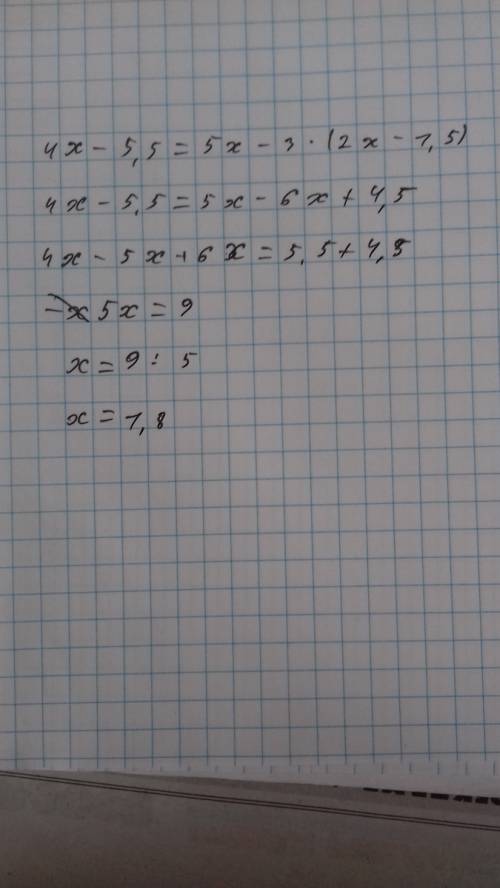 4x - 5,5 = 5x - 3 · (2x - 1,5)
4x - 5,5 = 5x - 6x + 4,5
4x - 5x + 6x = 5,5 + 4,5
5x = 9
x = 9 : 5
x = 1,8